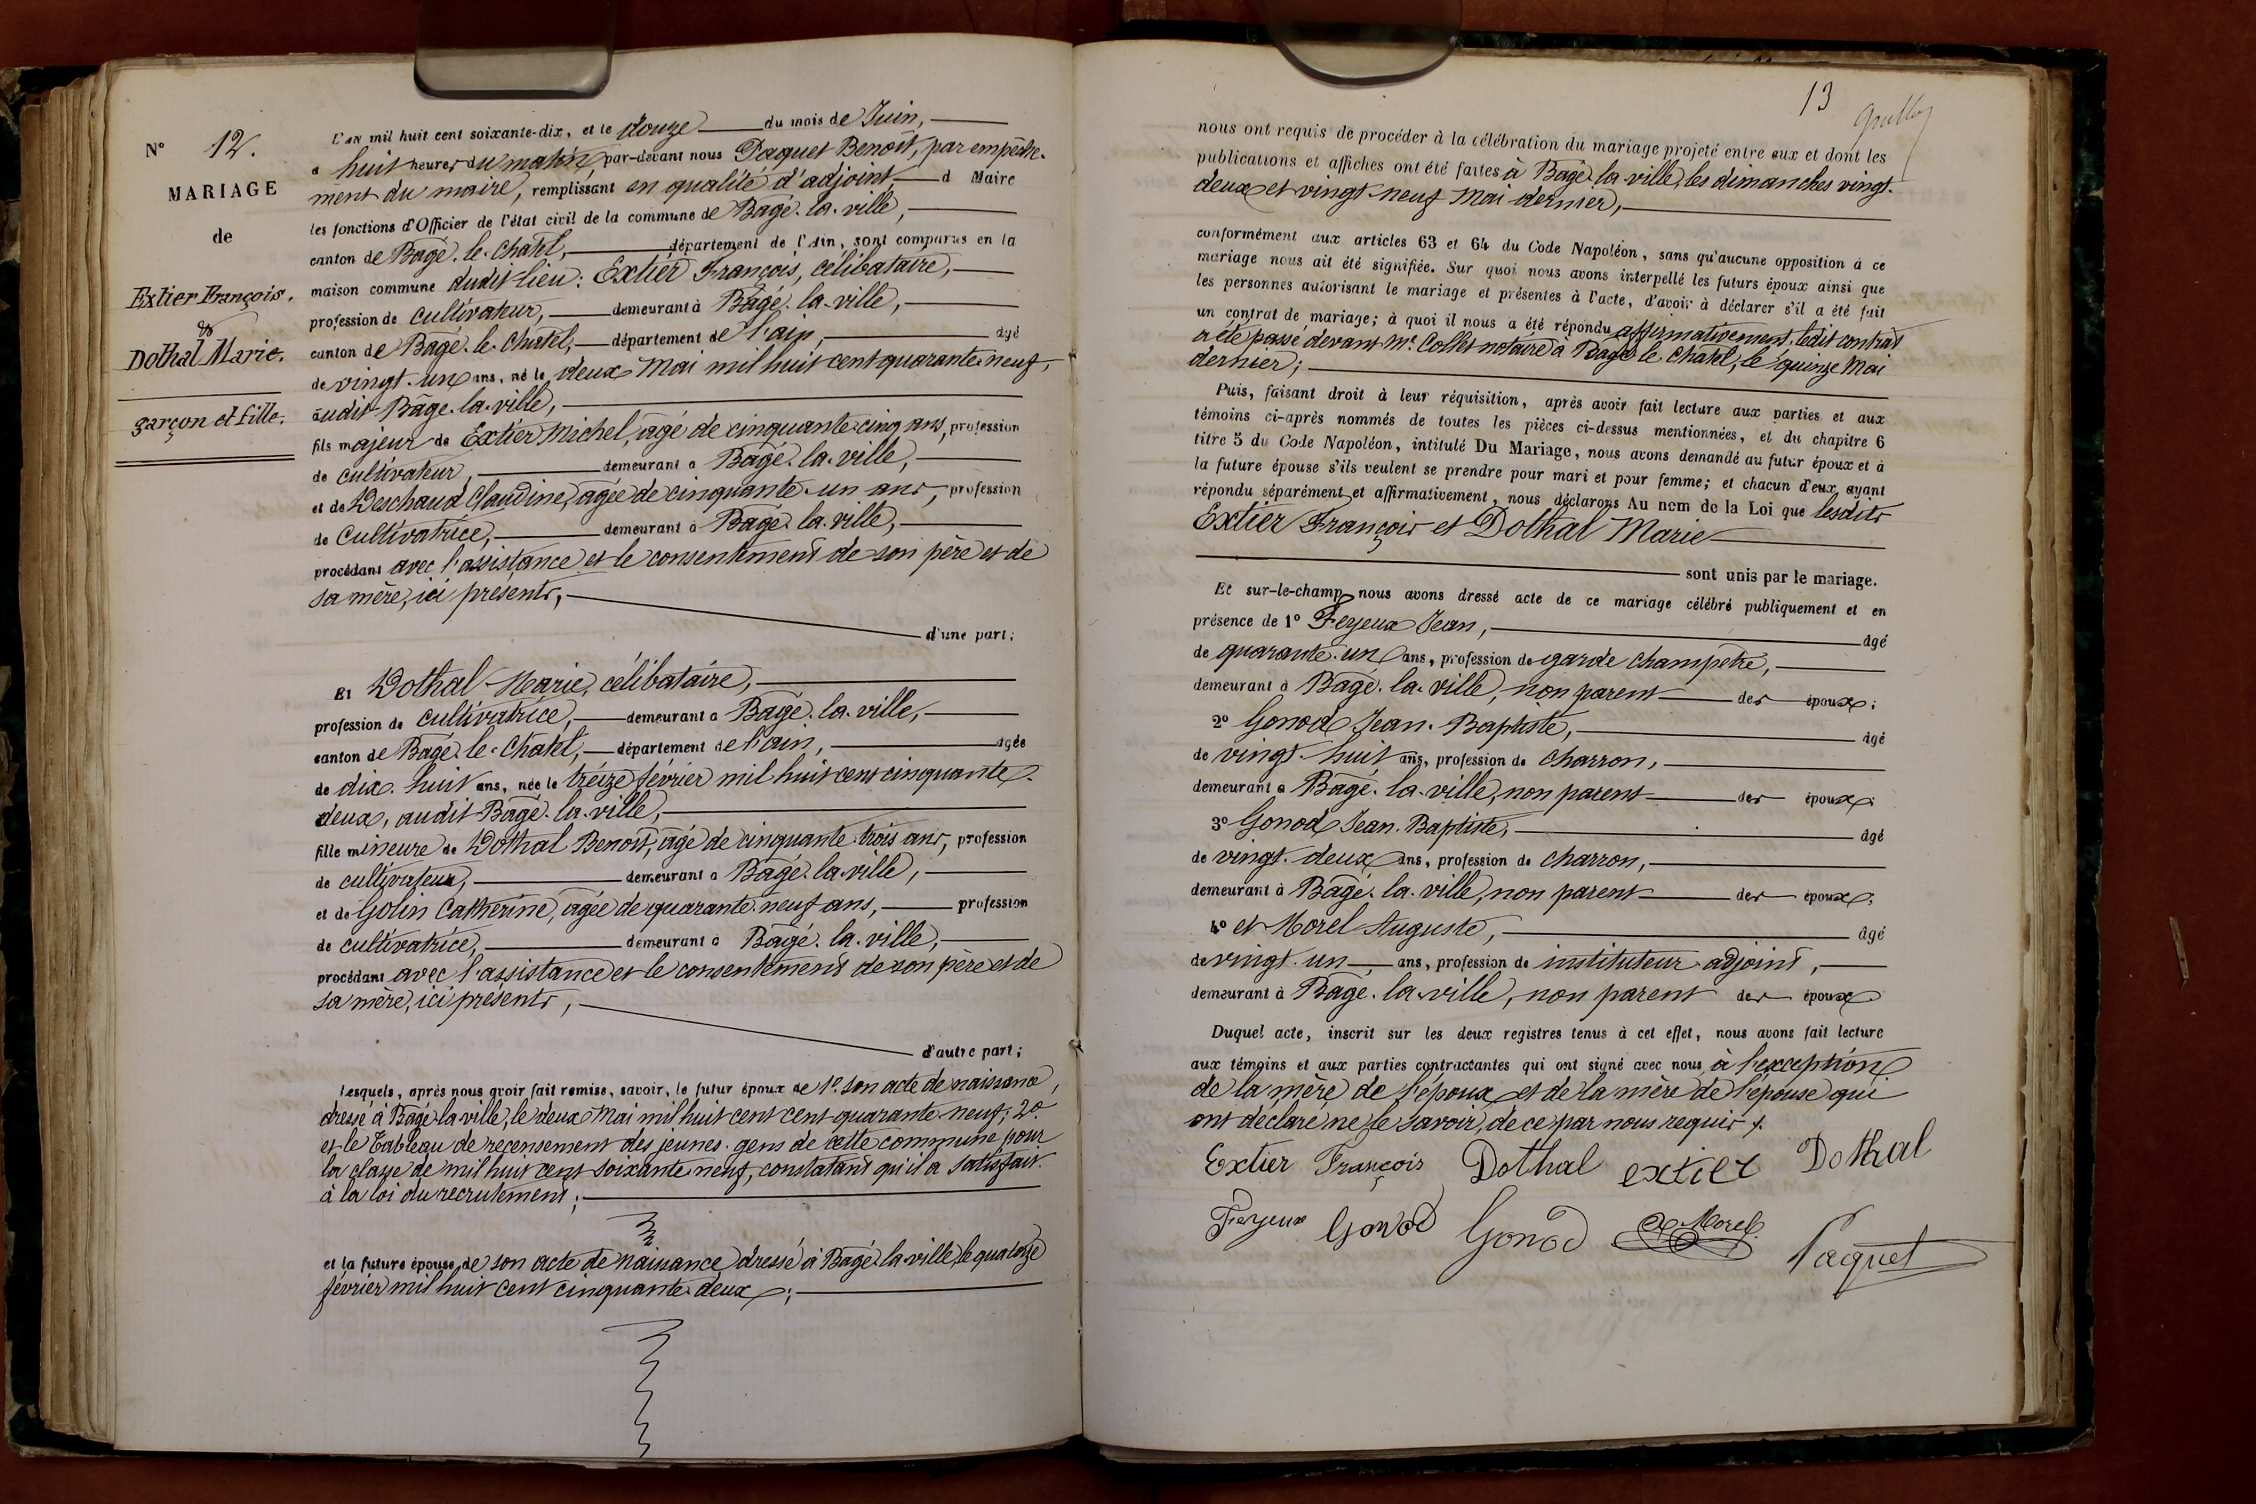 N° 12.
MARIAGE
de
Extier François.
&
Dothal Marie.
garçon et fille.
L'an mil huit cent soixante-dix, et le douze du mois de Juin,
a huit heures du matin, par-devant nous Paquet Benoît, par empêche-
ment du maire, remplissant en qualité d'adjoint, d Maire
les fonctions d'Officier de l'état civil de la commune de Bâgé-la-ville,
canton de Bâgé-le-Châtel, département de l'Ain, sont comparus en la
maison commune dudit lieu: Extier François, célibataire,
profession de cultivateur, demeurant à Bâgé-la-ville,
canton de Bâgé-le-Châtel, département de l'ain, âgé
de vingt-un ans, né le deux Mai mil huit cent quarante-neuf,
audit Bâgé-la-ville,
fils majeur de Extier Michel, âgé de cinquante-cinq ans, profession
de cultivateur, demeurant a Bâgé-la-ville,
et de Deschaud Claudine, âgée de cinquante-un ans, profession
de Cultivatrice, demeurant à Bâgé-la-ville,
procédant avec l'assistance et le consentement de son père et de
sa mère, ici présents,
d'une part;
Et Dothal Marie, célibataire,
profession de cultivatrice, demeurant a Bâgé-la-ville,
canton de Bâgé-le-Châtel, département de l'ain, âgée
de dix-huit ans, née le treize février mil huit cent cinquante-
deux, audit Bâgé-la-ville,
fille mineure de Dothal Benoît, âgé de cinquante-trois ans, profession
de cultivateur, demeurant a Bâgé-la-ville,
et de Golin Catherine, âgée de quarante-neuf ans, profession
de cultivatrice, demeurant à Bâgé-la-ville,
procédant avec l'assistance et le consentement de son père et de
sa mère, ici présents,
d'autre part;
Lesquels, après nous avoir fait remise, savoir, le futur époux de 1°. son acte de naissance,
dressé à Bâgé-la-ville, le deux Mai mil huit cent cent quarante-neuf; 2°.
et le Tableau de recensement des jeunes-gens de cette commune pour
la classe de mil huit cent soixante-neuf, constatant qu'il a satisfait
à la loi du recrutement;
et la future épouse, de son acte de naissance dressé à Bâgé-la-ville, le quatorze
février mil huit cent cinquante-deux;
13
nous ont requis de procéder à la célébration du mariage projeté entre eux et dont les
publications et affiches ont été faites à Bâgé-la-ville, les dimanches vingt-
deux et vingt-neuf Mai dernier,
conformément aux articles 63 et 64 du Code Napoléon, sans qu'aucune opposition à ce
mariage nous ait été signifiée. Sur quoi nous avons interpellé les futurs époux ainsi que
les personnes autorisant le mariage et présentes à l'acte, d'avoir à déclarer s'il a été fait
un contrat de mariage; à quoi il nous a été répondu affirmativement, ledit contrat
a été passé devant Me. Collet notaire à Bâgé-le-Châtel, le quinze Mai
dernier;
Puis, faisant droit à leur réquisition, après avoir fait lecture aux parties et aux
témoins ci-après nommés de toutes les pièces ci-dessus mentionnées, et du chapitre 6
titre 5 du Code Napoléon, intitulé Du Mariage, nous avons demandé au futur époux et à
la future épouse s'ils veulent se prendre pour mari et pour femme; et chacun d'eux ayant
répondu séparément et affirmativement, nous déclarons Au nom de la Loi que lesdits
Extier François et Dothal Marie
sont unis par le mariage.
Et sur-le-champ nous avons dressé acte de ce mariage célébré publiquement et en
présence de 1° Feyeux Jean, âgé
de quarante-un ans, profession de garde champêtre,
demeurant à Bâgé-la-ville, non parent des époux;
2° Gonod Jean-Baptiste, âgé
de vingt-huit ans, profession de charron,
demeurant a Bâgé-la-ville, non parent des époux;
3° Gonod Jean-Baptiste, âgé
de vingt-deux ans, profession de charron,
demeurant à Bâgé-la-ville, non parent des époux;
4° et Morel Auguste, âgé
de vingt-un ans, profession de instituteur-adjoint,
demeurant à Bâgé-la-ville, non parent des époux.
Duquel acte, inscrit sur les deux registres tenus à cet effet, nous avons fait lecture
aux témoins et aux parties contractantes qui ont signé avec nous, à l'exception
de la mère de l'époux et de la mère de l'épouse qui
ont déclaré ne le savoir, de ce par nous requis.
Extier François Dothal extier Dothal
Feyeux Gonod Gonod A. Morel
Paquet